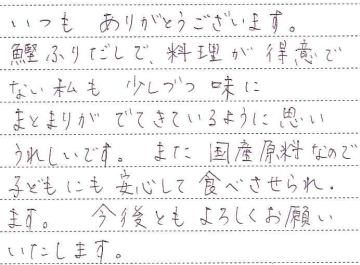 いつも ありがとうございます。
鰹ふりだしで、料理が得意で
ない私も 少しづつ 味に
まとまりが でてきているように思い
うれしいです。 また 国産原料なので
子どもにも 安心して 食べさせられ、
ます。 今後とも よろしくお願い
いたします。